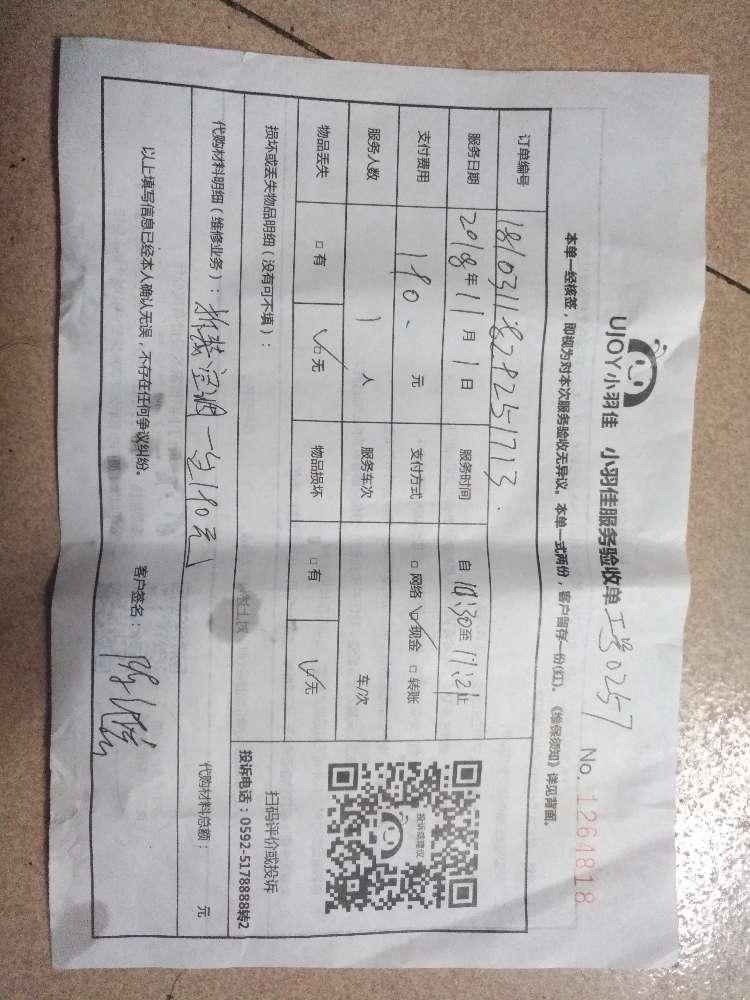 UJOY小羽佳 小羽佳服务验收单 工号0257 No. 1264818
本单一经核签，即视为对本次服务验收无异议。本单一式两份，客户留存一份(红)。《维保须知》详见背面。
订单编号
服务日期 2018年11月1日 服务时间 自 至 止
支付费用 190、元 支付方式 □网络 ☑现金 □转账
服务人数 1人 服务车次 车/次
物品丢失 □有 ☑无 物品损坏 □有 ☑无
损坏或丢失物品明细（没有可不填）：
投诉或建议
扫码评价或投诉
投诉电话：0592-5178888转2
代购材料明细（维修业务）：拆装空调一台190元 代购材料总额： 元
以上填写信息已经本人确认无误，不存在任何争议纠纷。 客户签名：